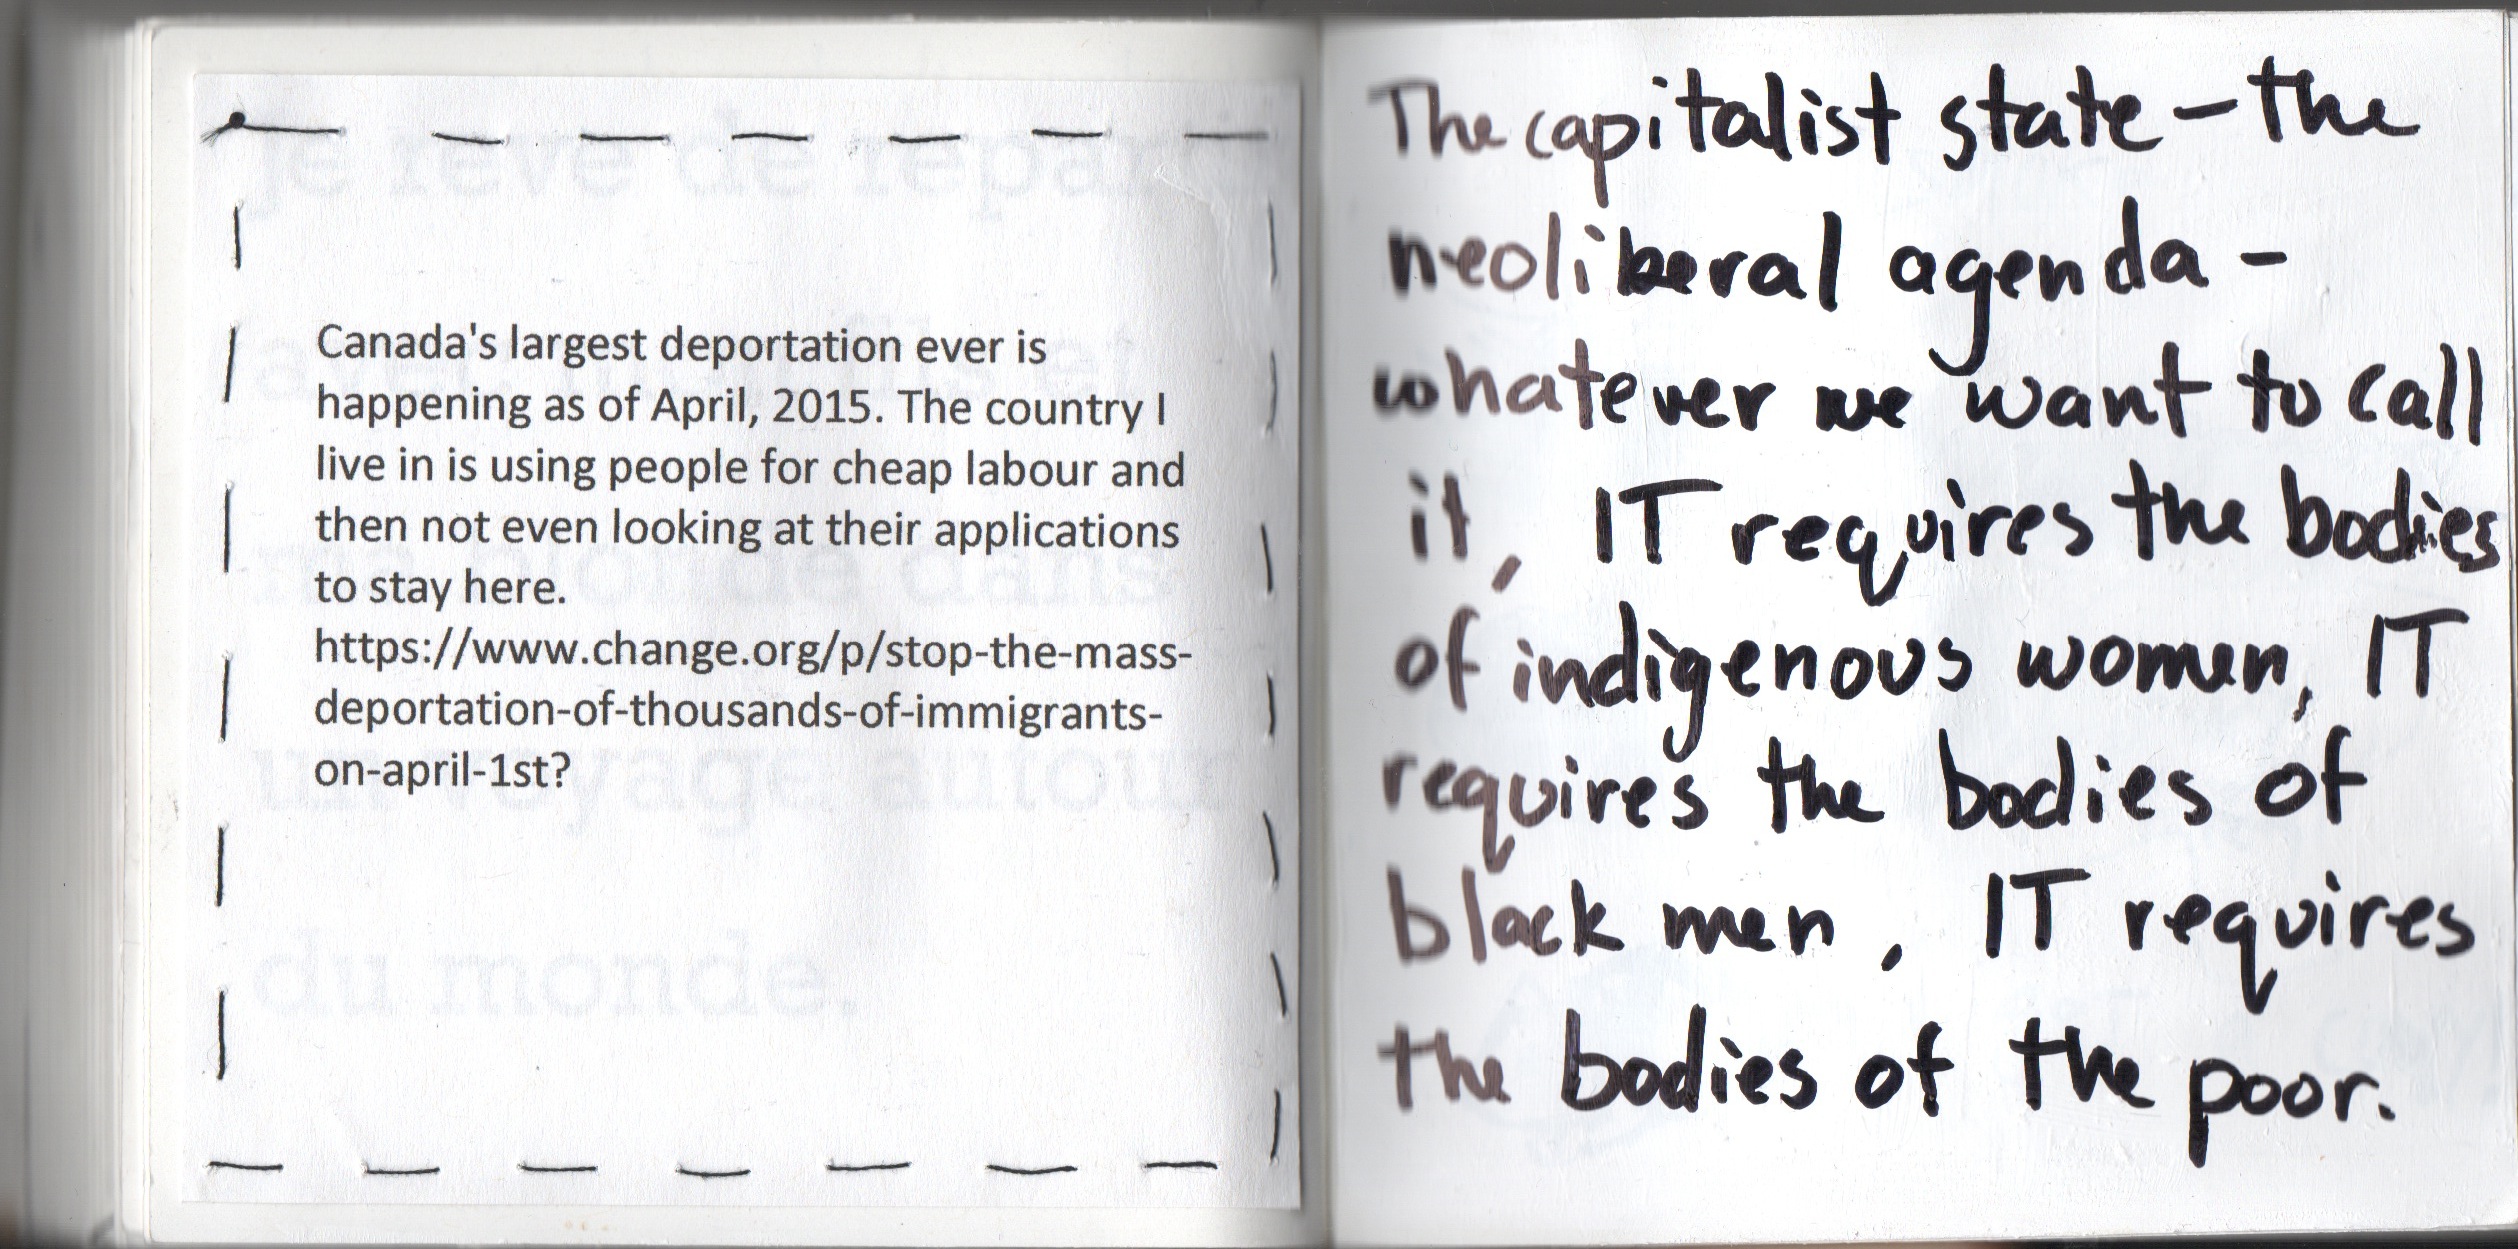 Canada's largest deportation ever is
happening as of April, 2015. The country I
live in is using people for cheap labour and
then not even looking at their applications
to stay here.
https://www.change.org/p/stop-the-mass-
deportation-of-thousands-of-immigrants-
on-april-1st?
je rêve de repartir
avec mon fils et
ma blonde dans
un voyage autour
du monde.
The capitalist state - the
neoliberal agenda -
whatever we want to call
it, IT requires the bodies
of indigenous women, IT
requires the bodies of
black men, IT requires
the bodies of the poor.